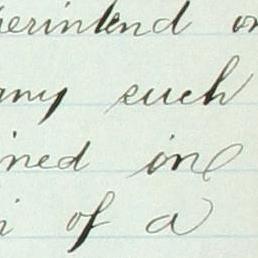 perintend on
any such
ined in
of a